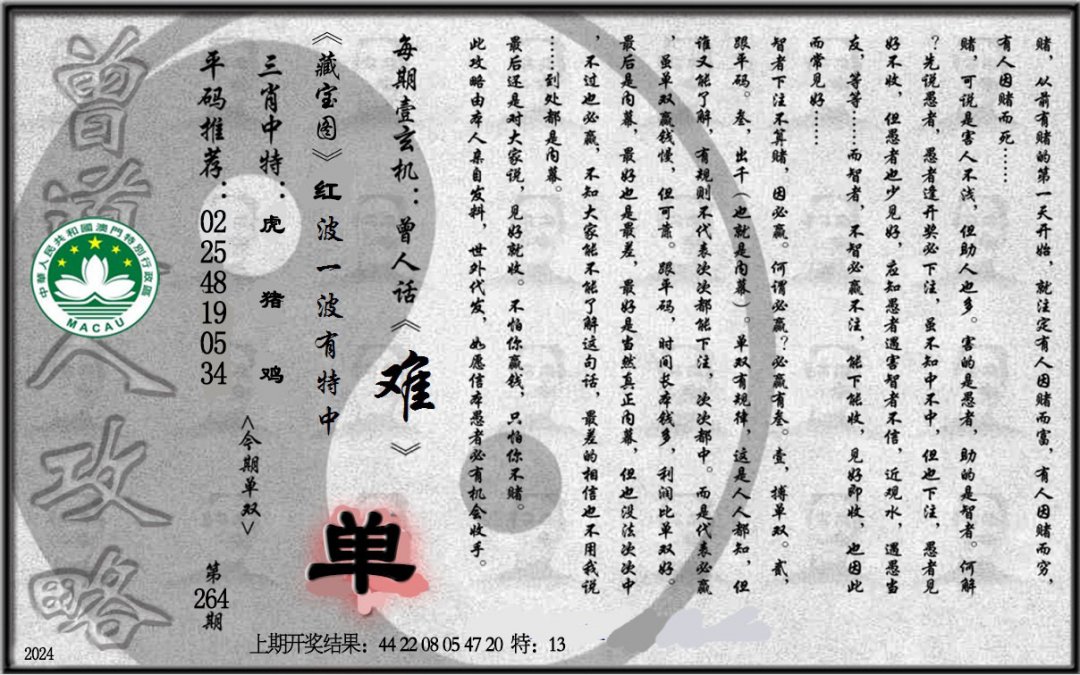 赌，从前有赌的第一天开始，就注定有人因赌而富，有人因赌而穷，
有人因赌而死……
赌，可说是害人不浅，但助人也多。害的是愚者，助的是智者。何解
？先说愚者，愚者逢开奖必下注，虽不知中不中，但也下注，愚者见
好不收，但愚者也少见好，应知愚者遇害智者不信，近观水，遇愚当
友，等等……而智者，不智必赢不注，能下能收，见好即收，也因此
而常见好……
智者下注不算赌，因必赢。何谓必赢？必赢有叁。壹，搏单双。贰，
跟平码。叁，出千（也就是内幕）。单双有规律，这是人人都知，但
谁又能了解，有规则不代表次次都能下注，次次都中。而是代表必赢
，虽单双赢钱慢，但可靠。跟平码，时间长本钱多，利润比单双好。
最后是内幕，最好也是最差，最好是当然真正内幕，但也没法次次中
，不过也必赢，不知大家能不能了解这句话，最差的相信也不用我说
……到处都是内幕。
最后还是对大家说，见好就收。不怕你赢钱，只怕你不赌。
此攻略由本人亲自发料，世外代发，如愿信本愚者必有机会收手。
每期壹玄机：曾人话《难》
《藏宝图》红波一波有特中
三肖中特：虎 猪 鸡
平码推荐：02 25 48 19 05 34
<今期单双>
单
第264期
曾道人攻略
中華人民共和國澳門特別行政區
MACAU
上期开奖结果：44 22 08 05 47 20 特：13
2024